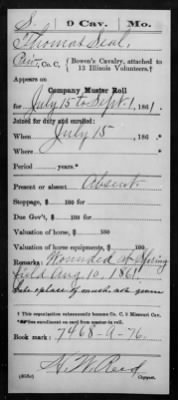 S. | 9 Cav. | Mo.
Thomas Seal,
Priv., Co. C, { Bowen's Cavalry, attached to
13 Illinois Volunteers.†
Appears on
Company Muster Roll
for July 15 to Sept 1, 1861.
Joined for duty and enrolled:
When July 15, 186 .*
Where
Period years.*
Present or absent Absent
Stoppage, $ 100 for
Due Gov't, $ 100 for
Valuation of horse, $ 100
Valuation of horse equipments, $ 100
Remarks: Wounded at Spring
field Aug 10, 1861
Date & place of muster not given
† This organization subsequently became Co. C, 9 Missouri Cav.
*See enrollment on card from muster-in roll.
Book mark: 7468-A-76.
H. W. Reed
Copyist.